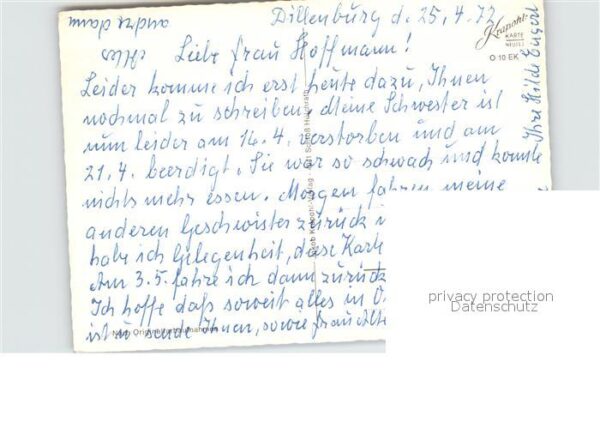 Dillenburg d. 25.4.72
Liebe Frau Hoffmann!
Leider komme ich erst heute dazu, Ihnen
nochmal zu schreiben. Meine Schwester ist
nun leider am 16.4. verstorben und am
21.4. beerdigt. Sie war so schwach und konnte
nichts mehr essen. Morgen fahren meine
anderen Geschwister zurück
habe ich Gelegenheit, diese Karte
Am 3.5. fahre ich dann zurück
Ich hoffe daß soweit alles in
Ihnen, sowie Frau
Ihre Hilde
Krapohl-
KARTE
O 10 EK
privacy protection
Datenschutz